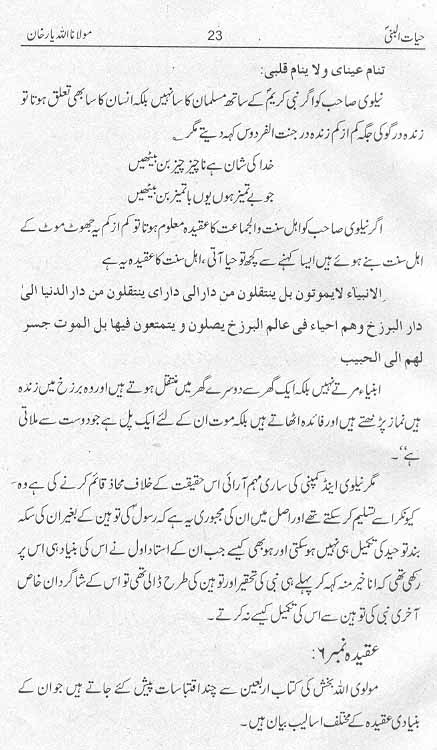 حیات النبیؐ 23 مولانا اللہ یار خان
تنام عینای ولا ینام قلبی:
نیلوی صاحب کو اگر نبی کریمؐ کے ساتھ مسلمان کا سا نہیں بلکہ انسان کا سا بھی تعلق ہوتا تو
زندہ در گور کی جگہ کم از کم زندہ در جنت الفردوس کہہ دیتے مگر ۔
خدا کی شان ہے ناچیز چیز بن بیٹھیں
جو بے تمیز ہوں یوں با تمیز بن بیٹھیں
اگر نیلوی صاحب کو اہل سنت والجماعت کا عقیدہ معلوم ہوتا تو کم از کم یہ جھوٹ موٹ کے
اہل سنت بنے ہوئے ہیں ایسا کہنے سے کچھ تو حیا آتی، اہل سنت کا عقیدہ یہ ہے
الانبیاء لایموتون بل ینتقلون من دارالی دارای ینتقلون من دار الدنیا الیٰ
دار البرزخ وهم احیاء فی عالم البرزخ یصلون و یتمتعون فیها بل الموت جسر
لهم الی الحبیب
ابنیاء مرتے نہیں بلکہ ایک گھر سے دوسرے گھر میں منتقل ہوتے ہیں اور وہ برزخ میں زندہ
ہیں نماز پڑھتے ہیں اور فائدہ اٹھاتے ہیں بلکہ موت ان کے لئے ایک پل ہے جو دوست سے ملاتی
ہے''۔
مگر نیلوی اینڈ کمپنی کی ساری مہم آرائی اس حقیقت کے خلاف محاذ قائم کرنے کی ہے وہ
کیونکر اسے تسلیم کر سکتے تھے اور اصل میں ان کی مجبوری یہ ہے کہ رسولؐ کی توہین کے بغیر ان کی سکہ
بند توحید کی تکمیل ہی نہیں ہو سکتی اور ہو بھی کیسے جب ان کے استاد اول نے اس کی بنیاد ہی اس پر
رکھی تھی کہ انا خیر منہ کہہ کر پہلے ہی نبی کی تحقیر اور توہین کی طرح ڈالی تھی تو اس کے شاگردان خاص
آخری نبی کی توہین سے اس کی تکمیل کیسے نہ کرتے۔
عقیدہ نمبر ۶:
مولوی اللہ بخش کی کتاب اربعین سے چند اقتباسات پیش کئے جاتے ہیں جو ان کے
بنیادی عقیدہ کے مختلف اسالیب بیان ہیں۔